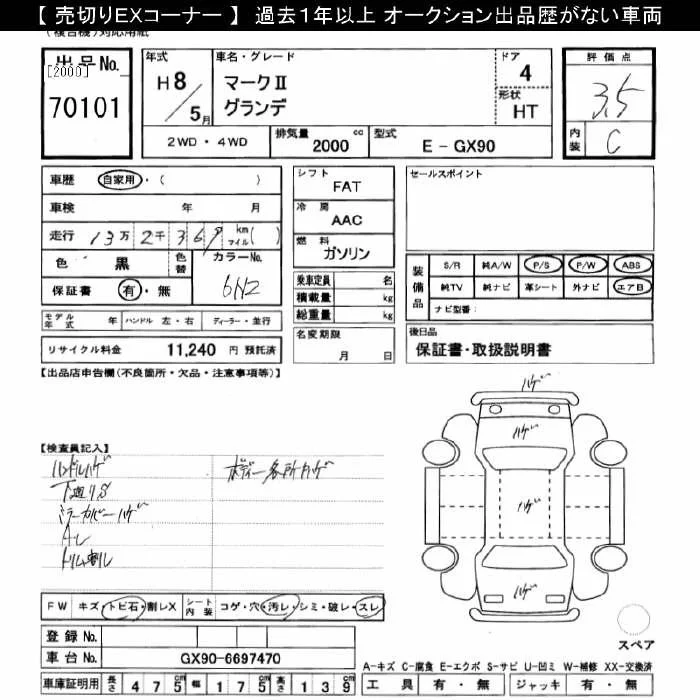 【 売切りEXコーナー 】 過去1年以上 オークション出品歴がない車両
(複合機)対応用紙
出品No.
[2000]
70101
年式
H8/5月
車名・グレード
マークⅡ
グランデ
ドア
4
形状
HT
2WD・4WD
排気量 2000 cc
型式 E-GX90
評価点
3.5
内装 C
車歴 自家用・( )
車検 年 月
走行 13万2千369 km マイル( )
色 黒 色替 カラーNo. 6N2
保証書 有・無
モデル年式 年 ハンドル 左・右 ディーラー・並行
リサイクル料金 11,240 円 預託済
シフト
FAT
冷房
AAC
燃料
ガソリン
乗車定員 名
積載量 kg
総重量 kg
名変期限
月 日
セールスポイント
装備品
S/R 純A/W P/S P/W ABS
純TV 純ナビ 革シート 外ナビ エアB
ナビ型番:
後日品
保証書・取扱説明書
【出品店申告欄(不良箇所・欠品・注意事項等)】
【検査員記入】
ハンドルハゲ
下廻りS
ミラーカバーハゲ
AL
トリム割レ
ボディー各所ハゲ
ハゲ
ハゲ
ハゲ
ハゲ
FW キズ・トビ石・割レX シート内装 コゲ・穴・汚レ・シミ・破レ・スレ
登録No.
車台No. GX90-6697470
車庫証明用 長さ 475cm 幅 175cm 高さ 139cm
スペア
A-キズ C-腐食 E-エクボ S-サビ U-凹ミ W-補修 XX-交換済
工具 有・無 ジャッキ 有・無